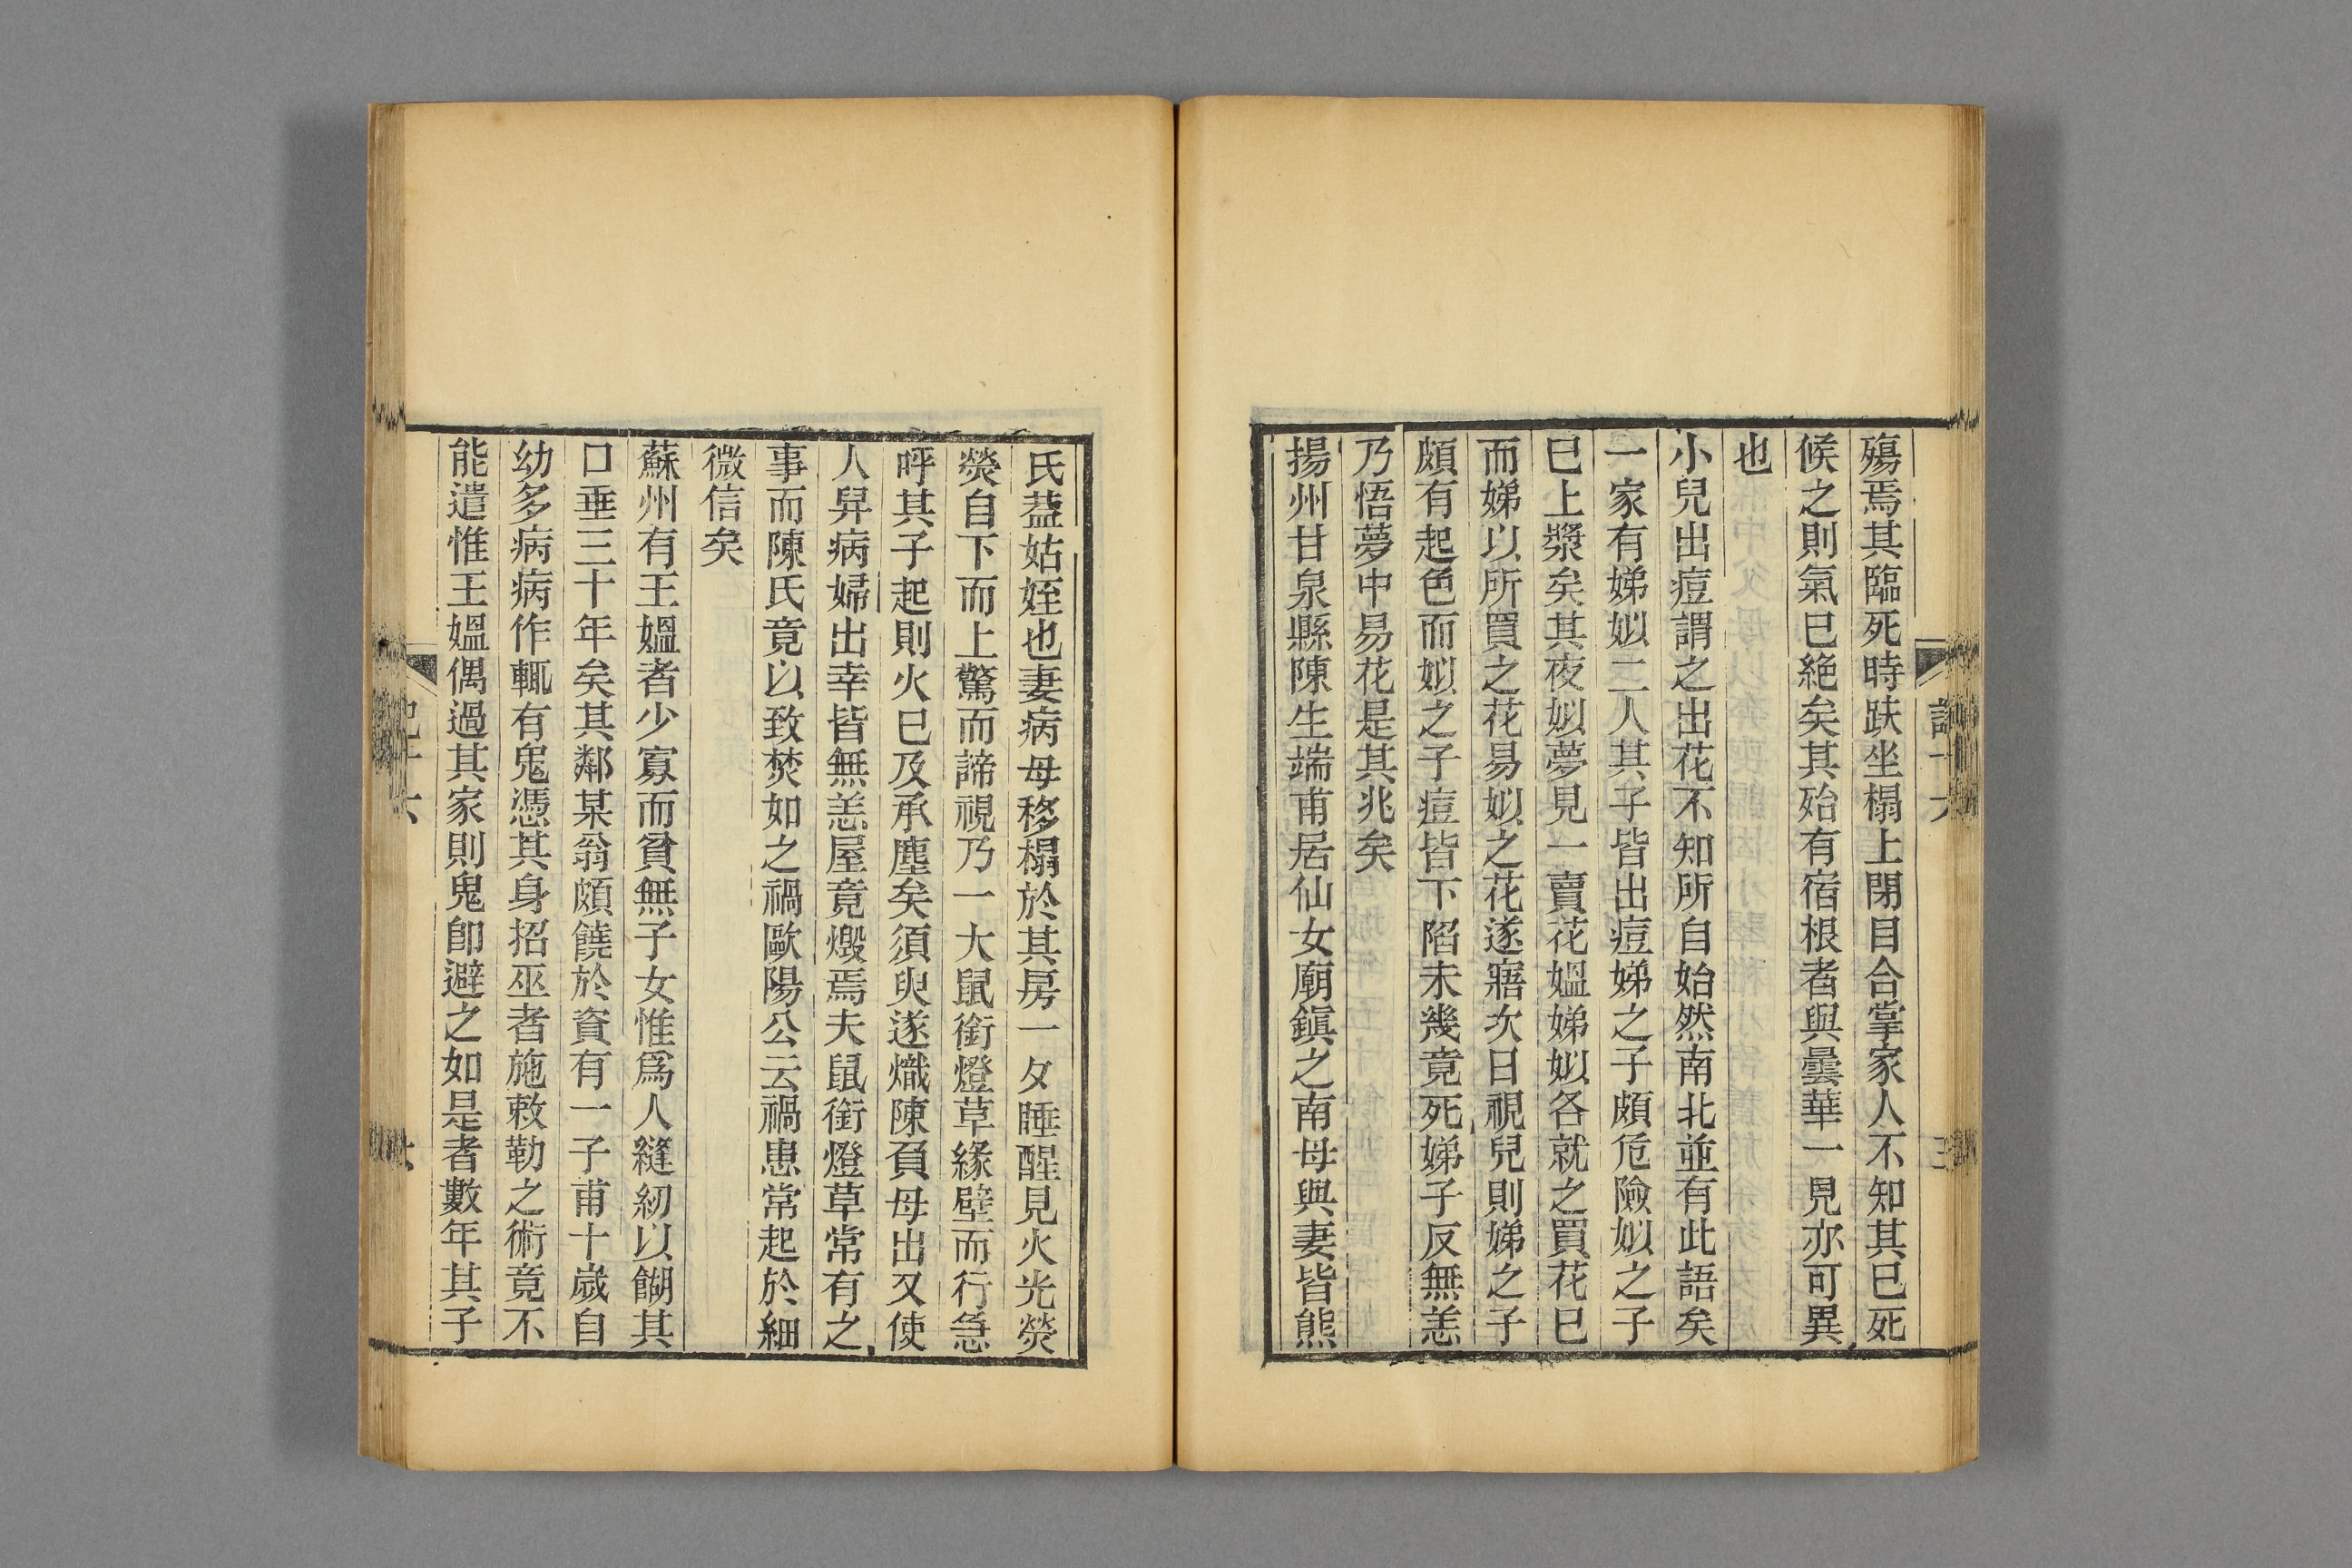 殤焉其臨死時趺坐榻上閉目合掌家人不知其已死
候之則氣已絶矣其殆有宿根者與曇華一見亦可異
也
小兒出痘謂之出花不知所自始然南北並有此語矣
一家有娣姒二人其子皆出痘娣之子頗危險姒之子
已上漿矣其夜姒夢見一賣花媼娣姒各就之買花已
而娣以所買之花易姒之花遂寤次日視兒則娣之子
頗有起色而姒之子痘皆下陷未幾竟死娣子反無恙
乃悟夢中易花是其兆矣
揚州甘泉縣陳生端甫居仙女廟鎭之南母與妻皆熊
氏葢姑姪也妻病母移榻於其房一夕睡醒見火光熒
熒自下而上驚而諦視乃一大鼠銜燈草緣壁而行急
呼其子起則火已及承塵矣須臾遂熾陳負母出又使
人舁病婦出幸皆無恙屋竟燬焉夫鼠銜燈草常有之
事而陳氏竟以致焚如之禍歐陽公云禍患常起於細
微信矣
蘇州有王媼者少寡而貧無子女惟爲人縫紉以餬其
口垂三十年矣其鄰某翁頗饒於資有一子甫十歲自
幼多病病作輒有鬼憑其身招巫者施敕勒之術竟不
能遣惟王媼偶過其家則鬼卽避之如是者數年其子